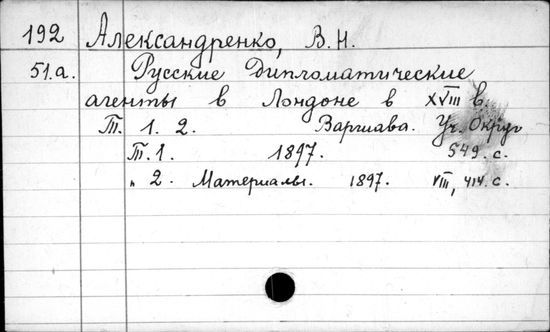 192 Александренко, В.Н.
51.а. Русские Дипломатические
агенты в Лондоне в XVIII в.
Т. 1. 2. Варшава. Уч. Округ
Т. 1. 1897. 549. с.
„ 2. Материалы. 1897. VIII, 414. с.